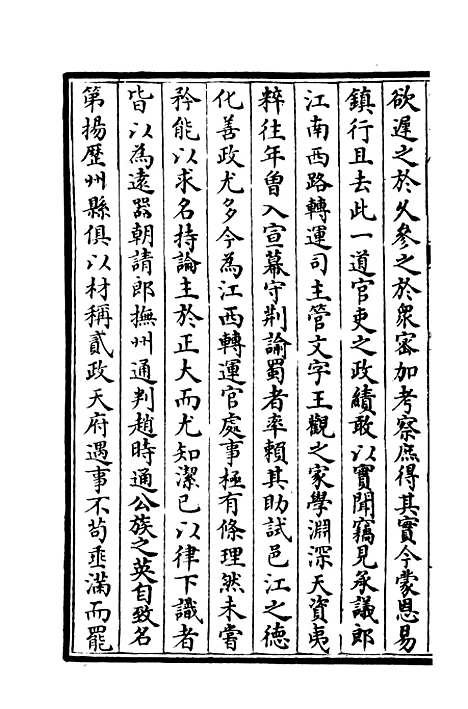 欲遲之於久參之於衆宻加考察庶得其實今蒙恩易
鎮行且去此一道官吏之政績敢以實聞竊見承議郎
江南西路轉運司主管文字王觀之家學淵深天資夷
粹往年曾入宣幕守荆論蜀者率賴其助試邑江之德
化善政尤多今為江西轉運官處事極有條理然未嘗
矜能以求名持論主於正大而尤知潔已以律下識者
皆以為遠器朝請郎撫州通判趙時通公族之英自致名
第揚歴州縣俱以材稱貳政天府遇事不苟垂滿而罷